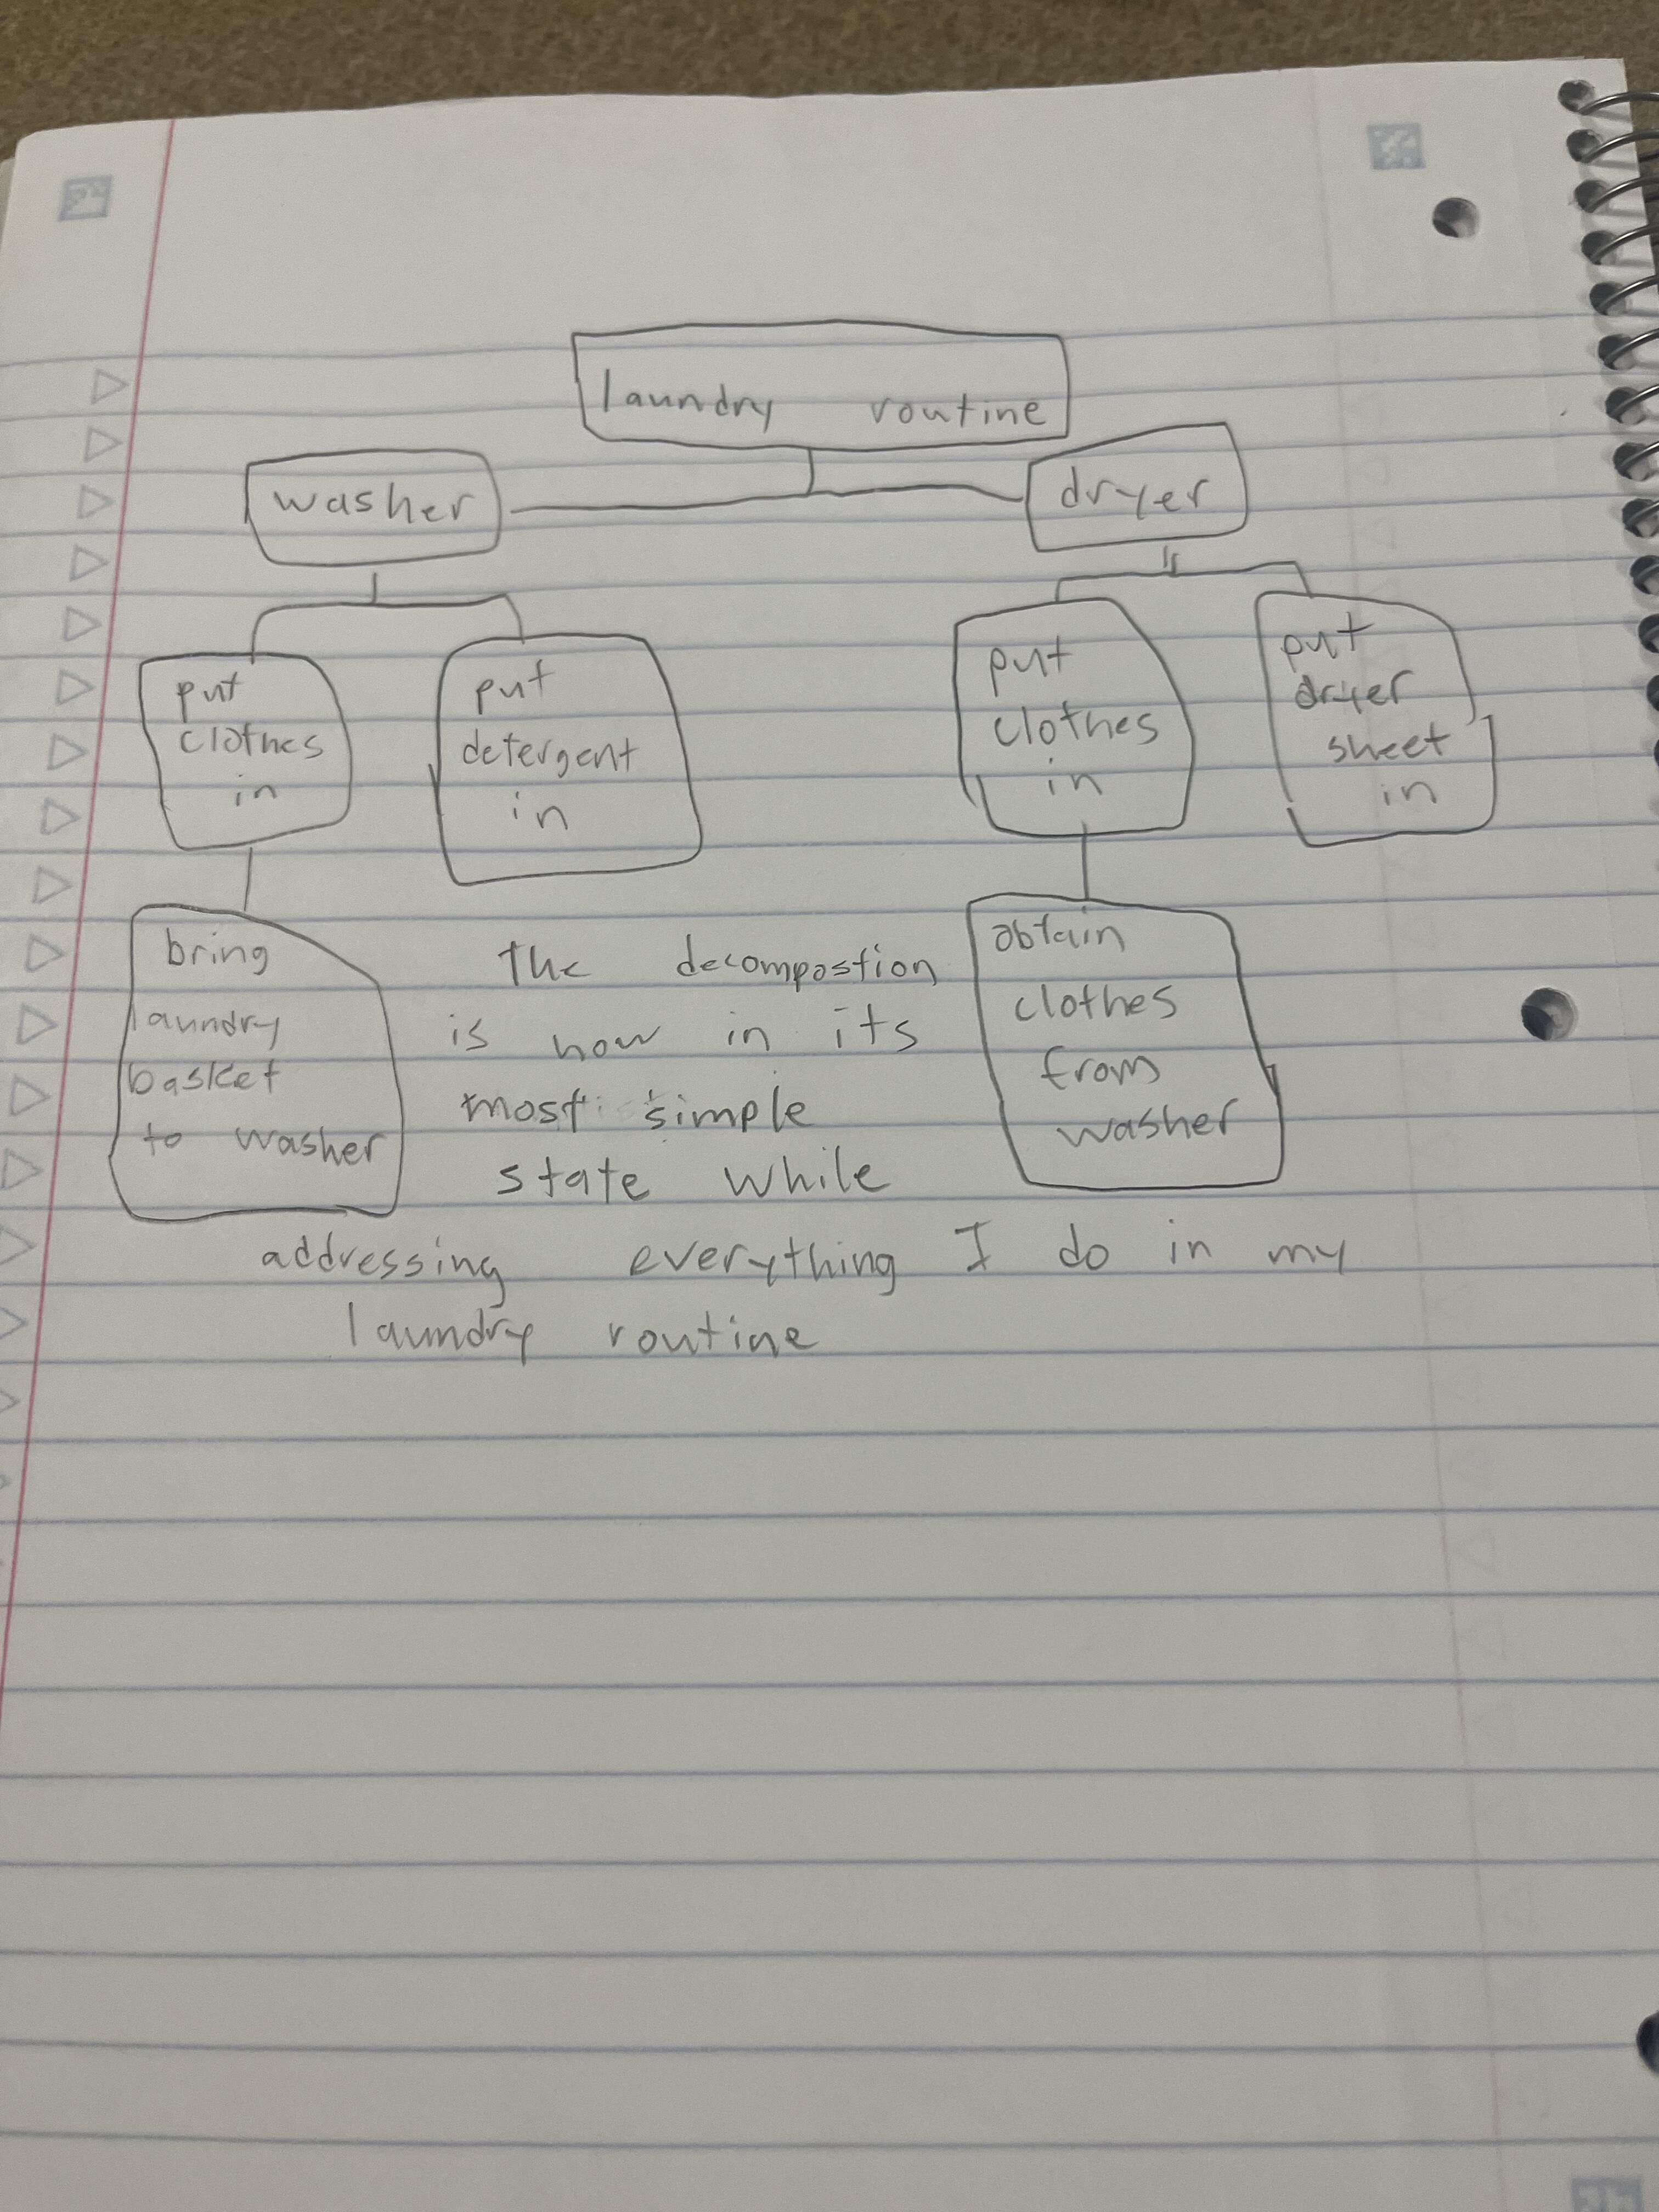 laundry routine
washer
dryer
put
clothes
in
put
detergent
in
put
clothes
in
put
dryer
sheet
in
bring
laundry
basket
to washer
obtain
clothes
from
washer
The decompostion
is now in its
most simple
state while
addressing everything I do in my
laundry routine